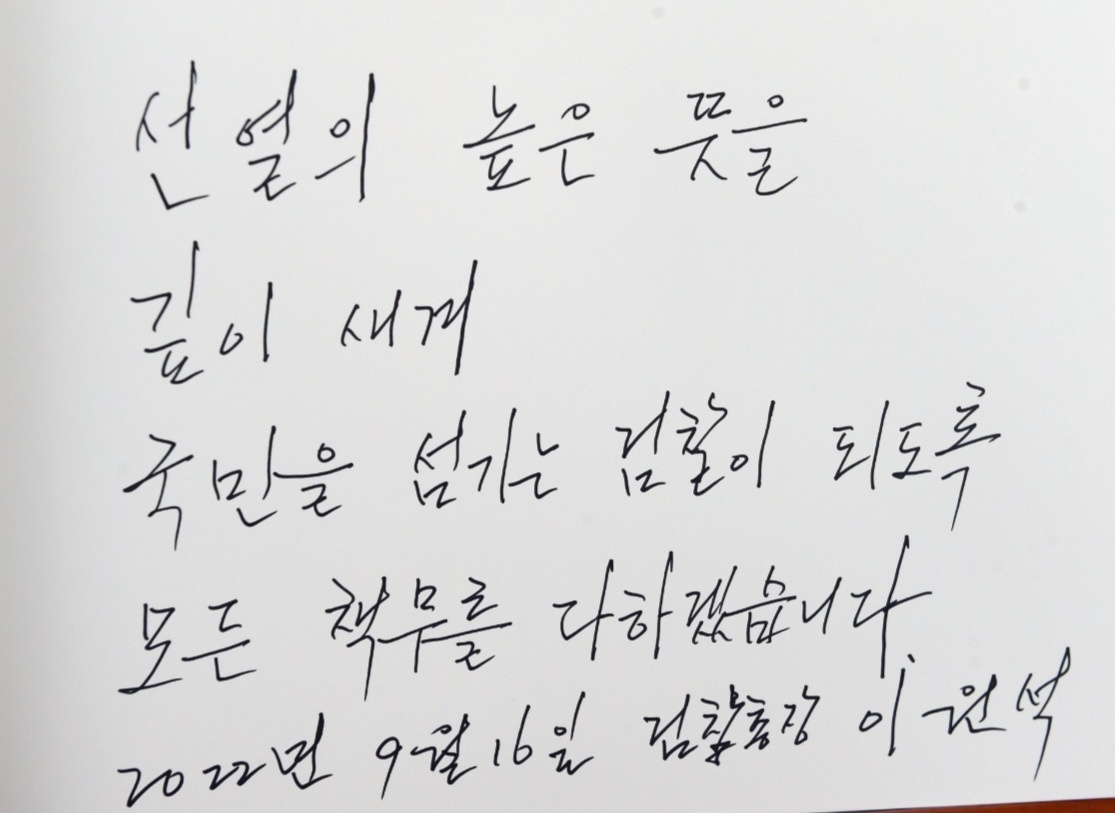 선열의 높은 뜻을
깊이 새겨
국민을 섬기는 검찰이 되도록
모든 책무를 다하겠습니다.
2022년 9월 16일 검찰총장 이원석